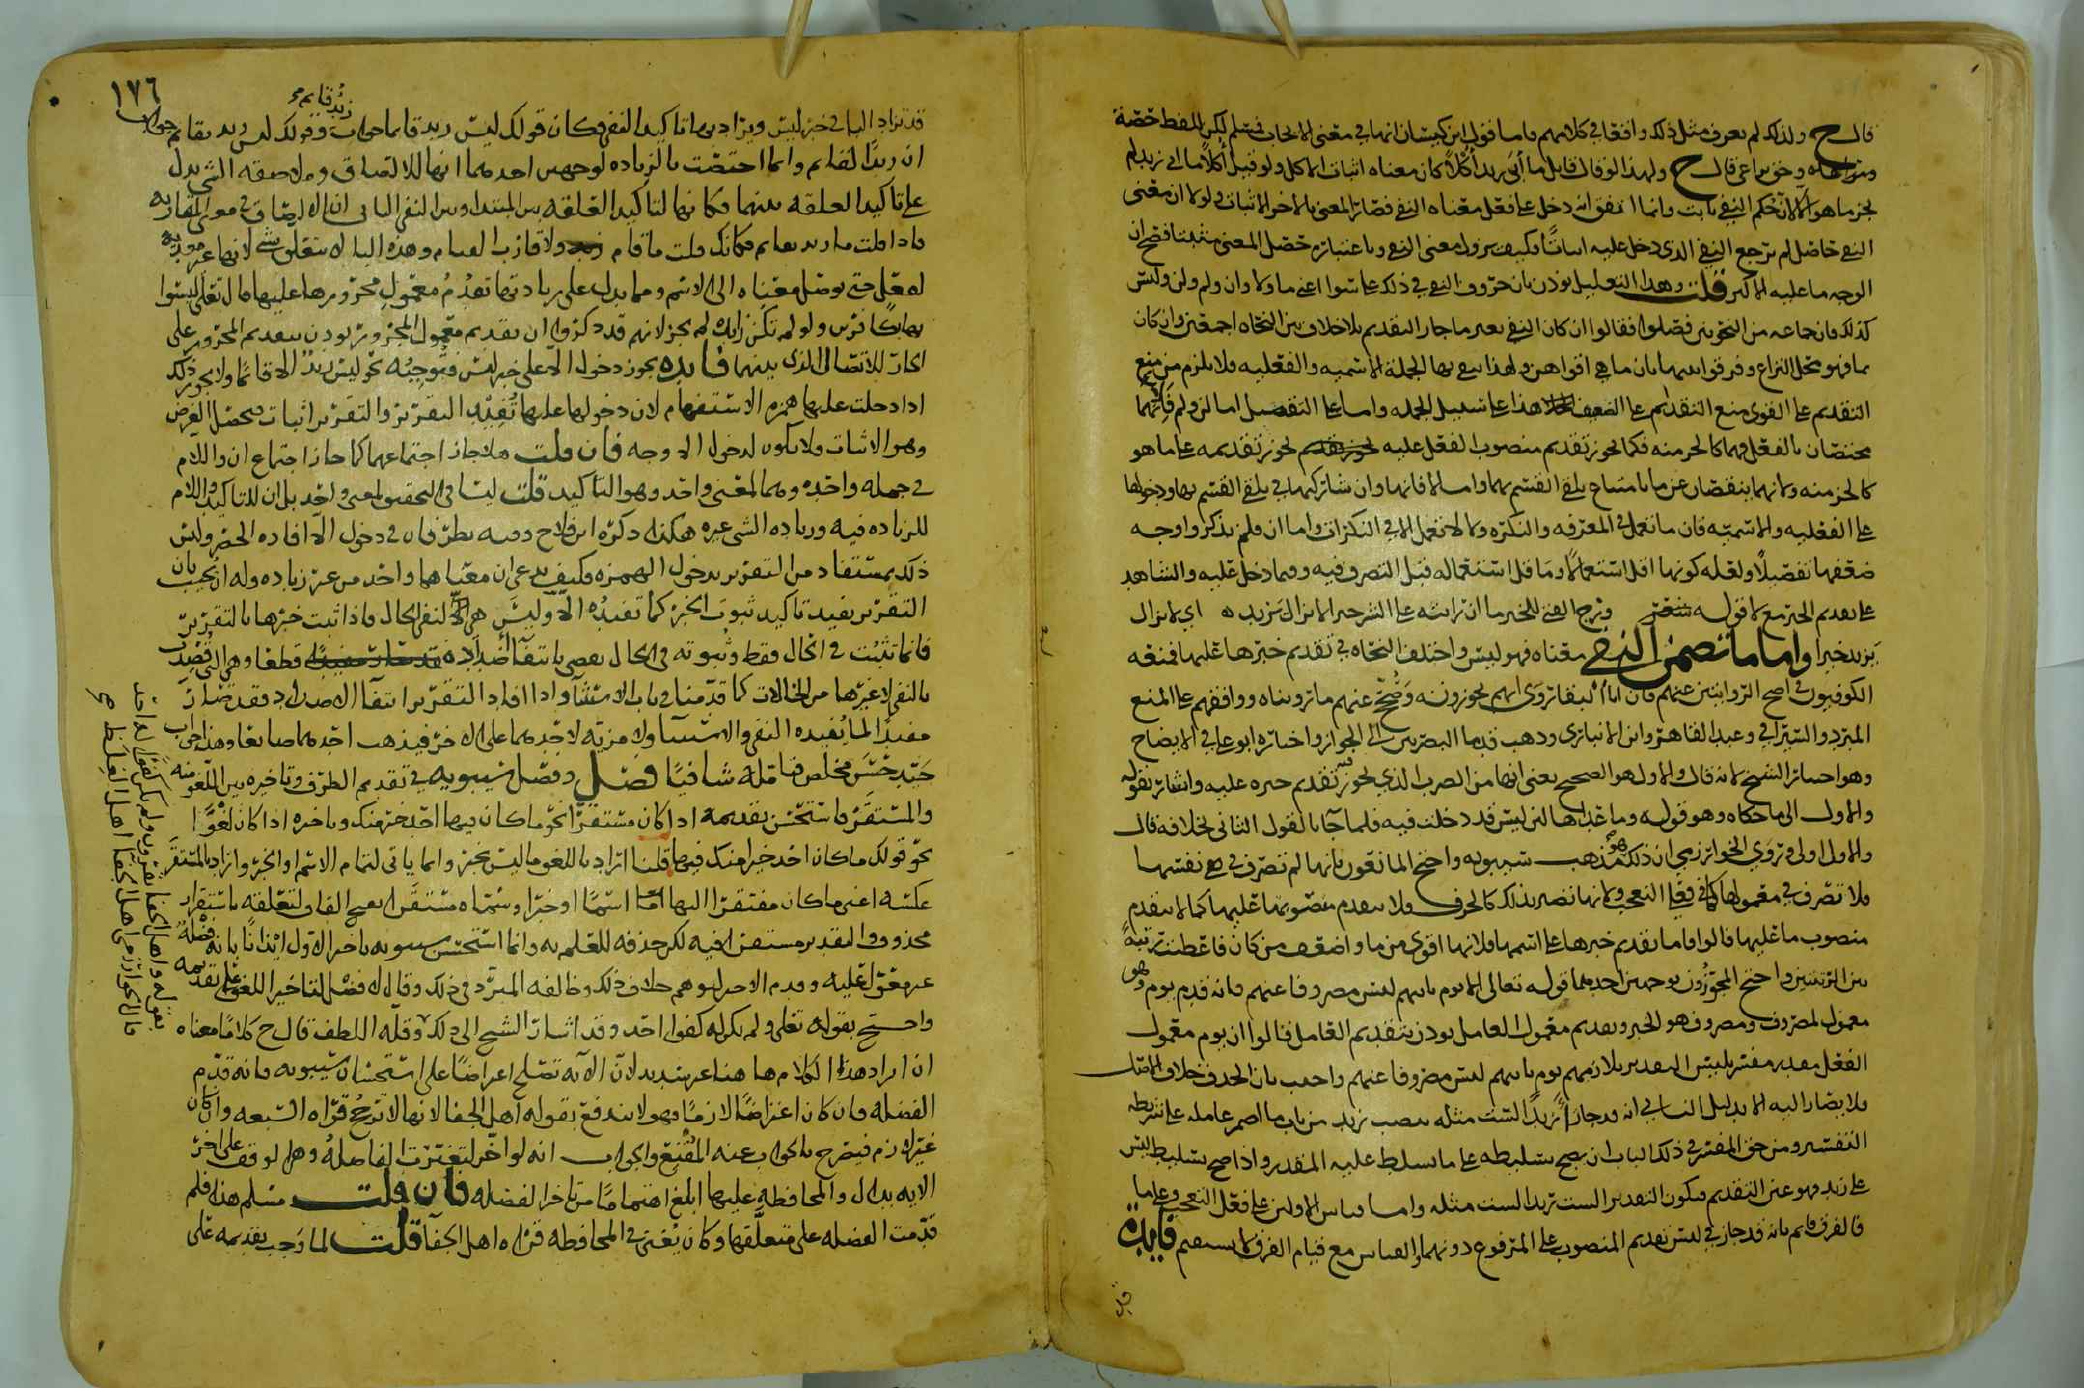 قال ح ولذلك لم يعرف مثل ذلك واقعا في كلامهم فاما قول ابن كيسان انها في معنى الايجاب فمسلم لكن للفظ حصة
وحق يراعى قال ح ولهذا لو قال قايل ما أبى زيد أكلًا كان معناه اثبات الاكل ولو قيل أكلًا ما ابى زيد لم
يجز ما هو الا لان حكم النفي ثابت وانما اتفق انه دخل على فعل معناه النفي فصار المعنى بالاخر الاثبات ولولا ان معنى
النفي حاصل لم يرجع النفي الذي دخل عليه اثباتًا وكيف يزول معنى النفي وباعتباره حصل المعنى مثبتا فصح ان
الوجه ما عليه الاكثر قلت وهذا التعليل يوذن بان حروف النفي في ذلك على سوا اعني ما ولا وان ولم ولن وليس
كذلك فان جماعه من النحويين فصلوا فقالوا ان كان النفي بغير ما جاز التقديم بلا خلاف بين النحاه اجمعين وان كان
بما فهو محل النزاع وفرقوا بينهما بان ما هي اقواهن ولهذا ينفى بها الجملة الاسميه والفعليه فلا يلزم من منع
التقديم على القوي منع التقديم على الضعيف هذا على سبيل الجمله واما على التفصيل اما لن ولم فانهما
مختصان بالفعل فهما كالجز منه فكما يجوز تقديم منصوب الفعل عليه يجوز تقديمه على ما هو
كالجز منه ولانهما ينقصان عن ما بامتناع تلقي القسم بهما واما لا فانها وان شاركتها في تلقي القسم بها ودخولها
على الفعليه والاسميه فان ما تعمل في المعرفه والنكره ولا لا تعمل الا في النكرات واما ان فلم يذكروا وجه
ضعفها تفصيلًا ولعله كونها اقل استعمالًا وما قل استعماله قبل التصرف فيه وفيما دخل عليه والشاهد
على تقديم الخبر مع لا قوله ورج الفتى للخير ما ان رايته على السن خيرا لا يزال يزيد اي لا يزال
يزيد خيرا واما ما تضمن النفي معناه فهو ليس واختلف النحاه في تقديم خبرها عليها فمنعه
الكوفيون في اصح الروايتين عنهم فان ابا البقا روى انهم يجوزونه وصحح عنهم ما رويناه ووافقهم على المنع
المبرد والسيرافي وعبد القاهر وابن الانباري وذهب قدما البصريين الى الجواز واختاره ابو علي في الايضاح
وهو اختيار الشيخ لانه قال والاول هو الصحيح يعني انها من الضرب الذي يجوز تقديم خبره عليه واشار بقوله
والاول الى ما حكاه وهو قوله وما عداها لنر ليس قد دخلت فيه فلما جا بالقول الثاني بخلافه قال
والاول اولى وروى الخوارزمي ان ذلك هو مذهب سيبويه واحتج المانعون بانها لم تصرف في نفسها
فلا تصرف في معمولها كما في فعل التعجب ولانها تصير بذلك كالحرف فلا يتقدم منصوبها عليها كما لا يتقدم
منصوب ما عليها قالوا فاما تقديم خبرها على اسمها فلانها اقوى من ما واضعف من كان فاعطيت رتبة
بين الرتبتين واحتج المجوزون بوجهين احدهما قوله تعالى الا يوم ياتيهم ليس مصروفا عنهم فانه قدم يوم وهو
معمول لمصروف ومصروف هو الخبر وتقديم معمول العامل يوذن بتقديم العامل قالوا ان يوم معمول
الفعل مقدر مفسر بليس التقدير يلازمهم يوم ياتيهم ليس مصروفا عنهم واجيب بان الحذف خلاف الاصل
فلا يصار اليه الا بدليل الثاني انه قد جاز أزيدًا الست مثله بنصب زيد من باب ما اضمر عامله على شريطه
التفسير ومن حق المفسر في ذلك الباب ان يصح تسليطه على ما يسلط عليه المقدر واذا صح تسليط ليس
على زيد فهو عين التقديم فيكون التقدير الست زيدا لست مثله واما قياس الاولين على فعل التعجب وعلى ما
فالفرق قايم بانه قد جاز في ليس تقديم المنصوب على المرفوع دونهما والقياس مع قيام الفرق لا يستقيم فايدة
قد
١٧٦
قد تزاد البا في خبر ليس ويراد بها تاكيد النفي فكان قولك ليس زيد قايما جواب زيد قايم وقولك ليس زيد بقايم جواب
ان زيدًا لقايم وانما اختصت بالزياده لوجهين احدهما انها للالتصاق وملاصقه الشي يدل
على تاكيد العلقه بينهما فكانها لتاكيد العلقه بين المبتدا وبين النفي الثاني ان الالصاق في معنى المقاربه
فاذا قلت ما زيد بقايم فكانك قلت ما قام ولا قارب القيام وهذه البا لا تتعلق بشي لانها غير موديه
له فعل حتى يوصل معناه الى الاسم ومما يدل على زيادتها تقدم معمول مجرورها عليها قال تعالى ليسوا
بها بكافرين ولو لم تكن زايده لم يجز لانهم قد ذكروا ان تقديم معمول المجرور يوذن بتقديم المجرور على
الجار للاتصال الذي بينهما فايده يجوز دخول الا على خبر ليس فتوجبه نحو ليس زيد الا قايمًا ولا يجوز ذلك
اذا دخلت عليها همزه الاستفهام لان دخولها عليها تفيد التقرير والتقرير اثبات فحصل الغرض
وهو الاثبات ولا يكون لدخول الا وجه فان قلت هلا جاز اجتماعهما كما جاز اجتماع ان واللام
في جمله واحده وهما لمعنى واحد وهو التاكيد قلت ليسا في التحقيق لمعنى واحد بل ان للتاكيد واللام
للزياده فيه وزياده الشي غيره هكذا ذكره ابن فلاح وفيه نظر فان في دخول الا افاده الحصر وليس
ذلك بمستفاد من التقرير بدخول الهمزه فكيف يدعى ان معناهما واحد من غير زياده وله ان يجيب بان
التقرير يفيد تاكيد ثبوت الخبر كما تفيده الا وليس هي لنفي الحال فاذا ثبت خبرها بالتقرير
فانما تثبت في الحال فقط وثبوته في الحال يقضي بانتفا أضداده قطعا وهي التي قصدت
بالنفي لا غيرها من الحالات كما قدمنا في باب الاستثنا واذا افاد التقرير انتفا الاضداد فقد صار
مفيدًا لما يفيده النفي والاستثنا ولا مزيه لاحدهما على الاخر فيذهب احدهما ضايعا وهذا جواب
جيد حسن مخلص فتامله شافيًا فصل وفصل سيبويه في تقديم الظرف وتاخيره بين اللغو منه
والمستقر فاستحسن تقديمه اذا كان مستقرًا نحو ما كان فيها احد خير منك وتاخيره اذا كان لغوًا
نحو قولك ما كان احد خيرا منك فيها قلنا اراد باللغو ما ليس بخبر وانما ياتي لتمام الاسم او الخبر واراد بالمستقر
عكسه اعني ما كان مفتقرًا اليها امّا اسمًا او خبرًا وسماه مستقَرا بفتح القاف لتعلقه باستقرار
محذوف والتقدير مستقر فيه لكن حذفه للعلم به وانما استحسن سيبويه تاخير الاول ايذانًا بانه فضلة
غير معتول عليه وقدم الاخر ليوهم خلاف ذلك وخالفه المبرد في ذلك وقال لا فضل لتاخير اللغو على تقديمه
واحتج بقوله تعالى ولم يكن له كفوا احد وقد اشار الشيخ الى ذلك وقلة اللطف قال ح كلامًا معناه
ان ايراد هذا الكلام ها هنا غير سديد لان الآيه تصلح اعراضًا على استحسان سيبويه فانه قدم
الفضله فان كان اعتراضًا لازمًا فهو لا يندفع بقوله أهل الجفا لانها لا ترجح قراه السبعه وان كان
غير لازم فيصرح بالجواب عنه المقنع والجواب انه لو اخر لتغيرت الفاصلة وهل لو وقف على اخر
الايه بدال والمحافظة عليها ابلغ اهتمامًا من تاخر الفضله فان قلت مسلم هذا فلم
قدمت الفضله على متعلقها وكان يُغني في المحافظه قراه اهل الجفا قلت لما وجب تقديمه على
بقوله واهل الجفا يقرون ولم يكن كفوا له احد
قال الخوارزمي اهل الجفا اهل الغلظ